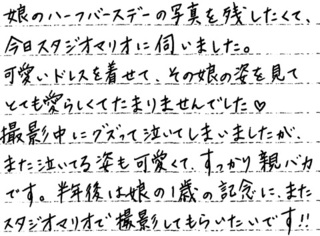 娘のハーフバースデーの写真を残したくて、
今日スタジオマリオに伺いました。
可愛いドレスを着せて、その娘の姿を見て
とても愛らしくてたまりませんでした♡
撮影中にグズって泣いてしまいましたが、
また泣いてる姿も可愛くて、すっかり親バカ
です。半年後は娘の1歳の記念に、また
スタジオマリオで撮影してもらいたいです!!